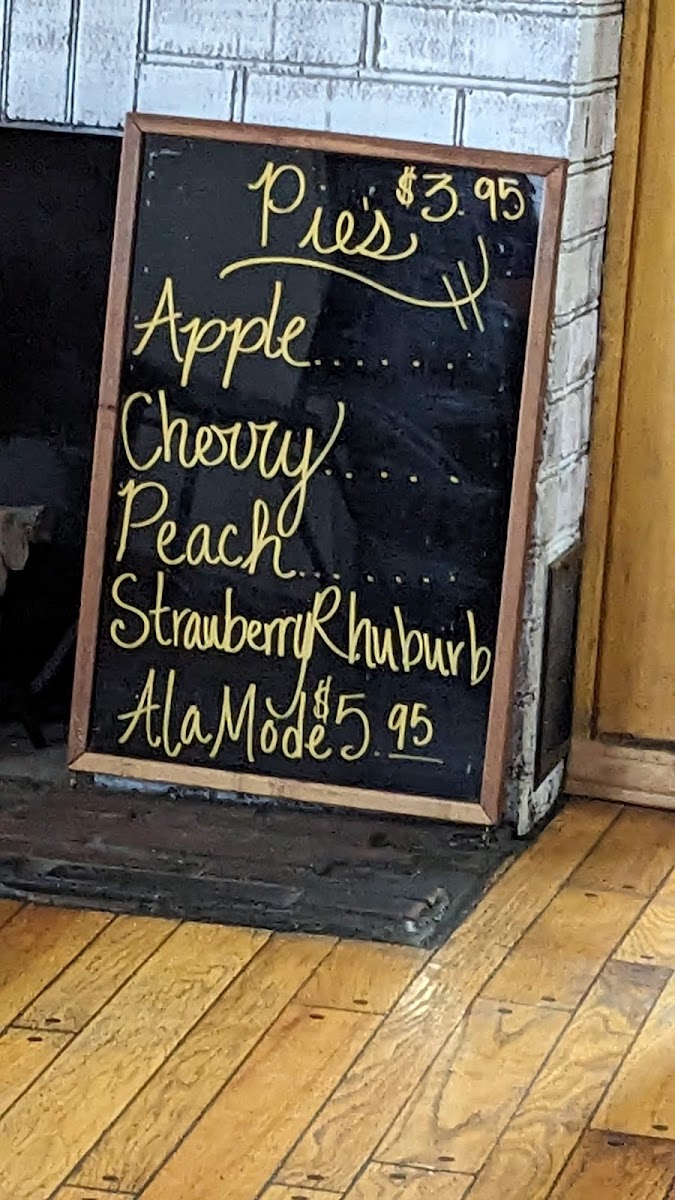 Pie's $3.95
Apple......
Cherry.....
Peach.......
StrawberryRhuburb
Ala Mode $5.95